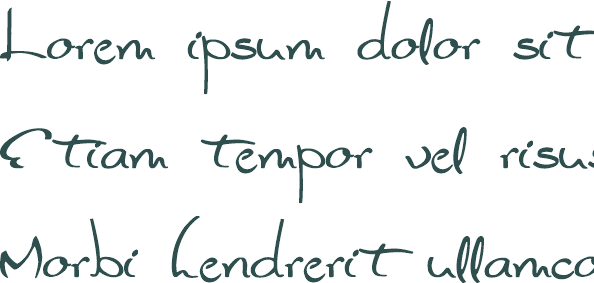 Lorem ipsum dolor sit
Etiam tempor vel risus
Morbi hendrerit ullamco